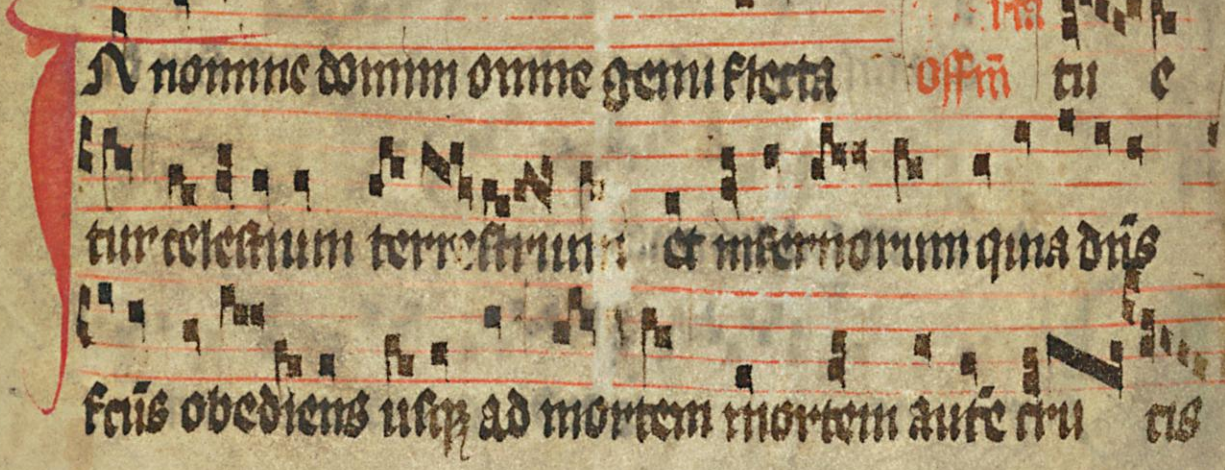 In nomine domini omne genu flecta offm tu e
tur celestium terrestrium et infernorum quia dn̄s
fcūs obediens usqꝫ ad mortem mortem autē cru cis